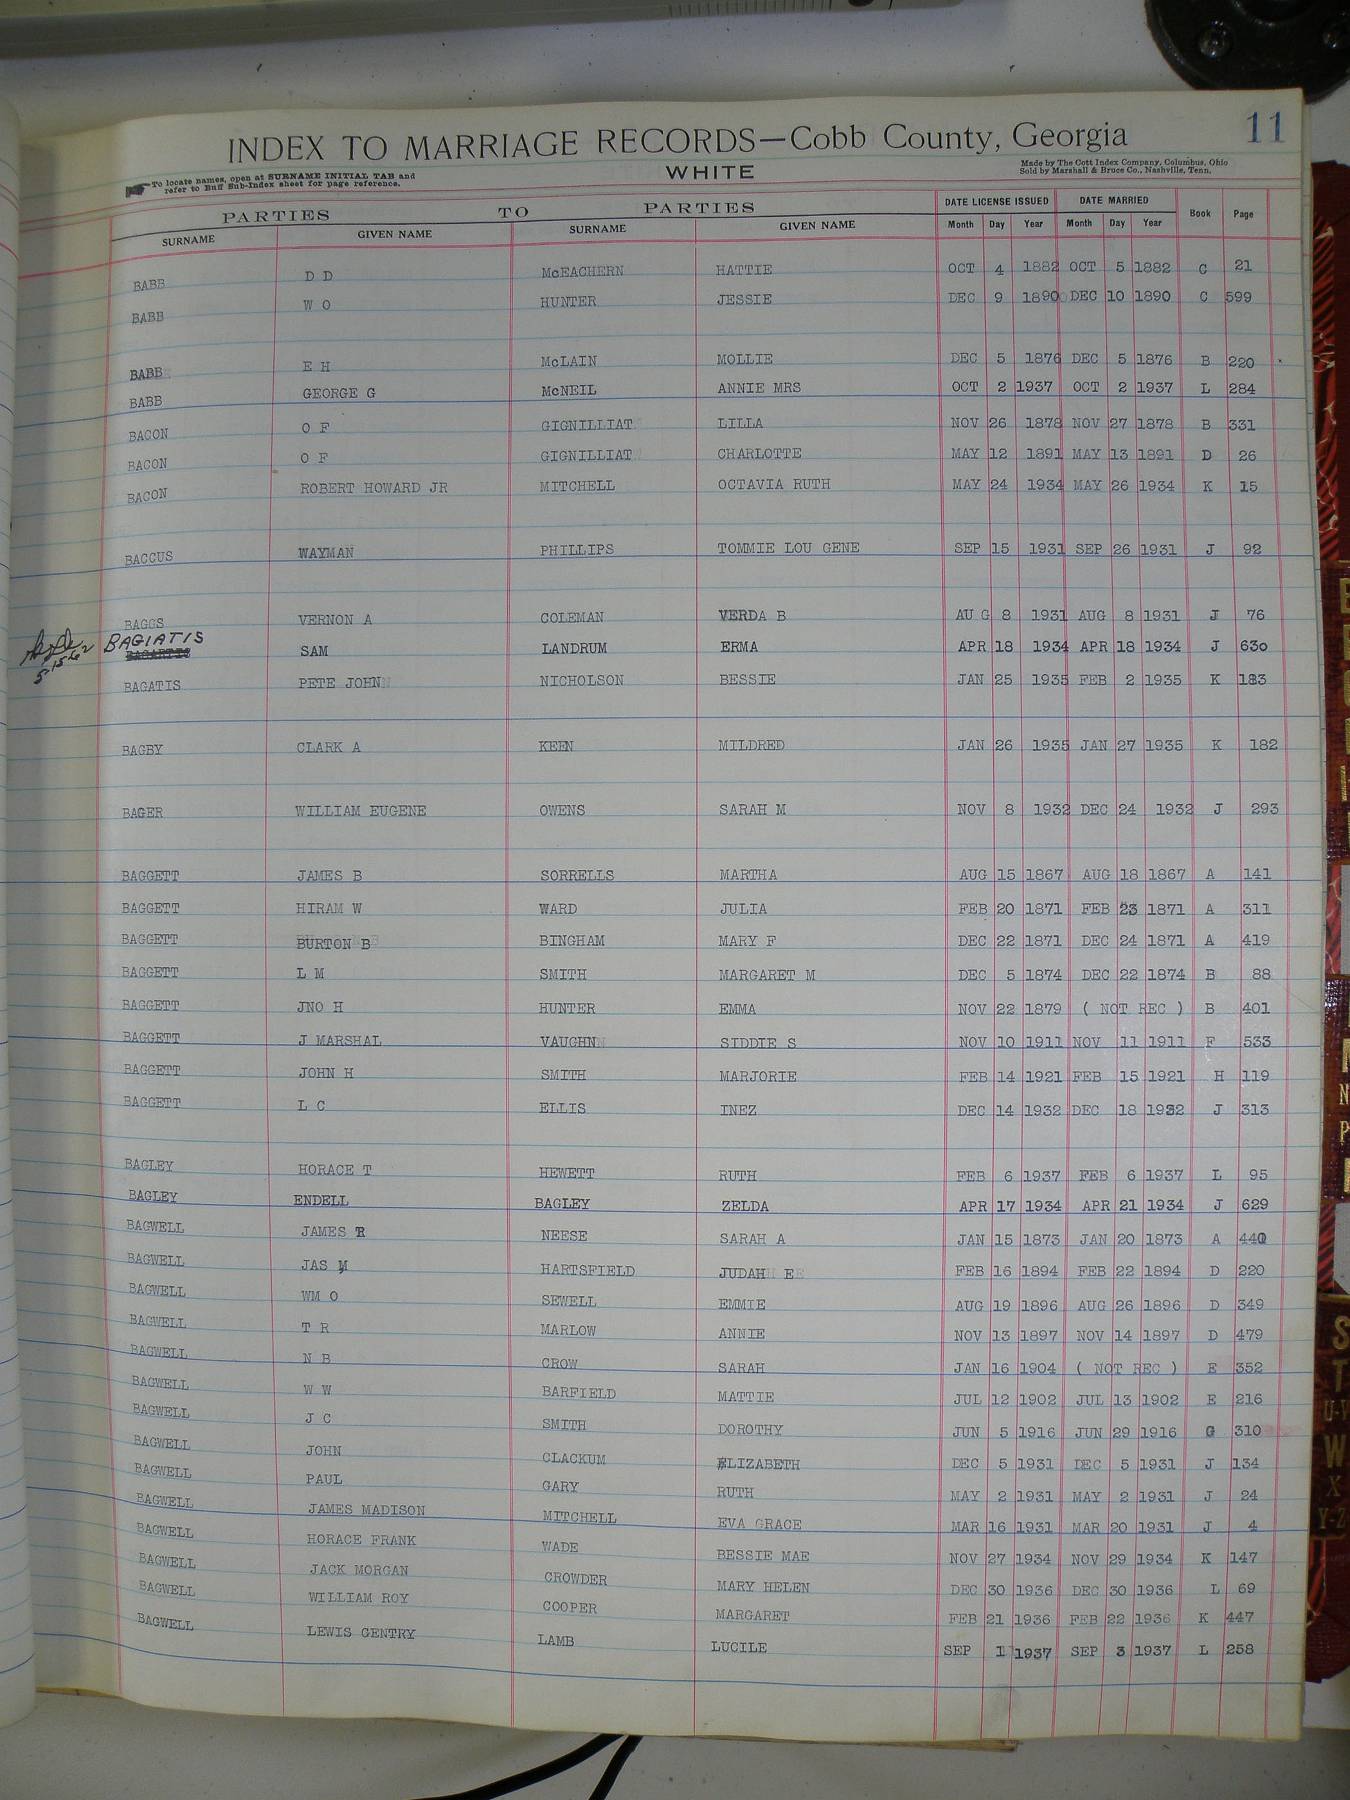 11
INDEX TO MARRIAGE RECORDS—Cobb County, Georgia
To locate names, open at SURNAME INITIAL TAB and
refer to Buff Sub-Index sheet for page reference.
WHITE
Made by The Cott Index Company, Columbus, Ohio
Sold by Marshall & Bruce Co., Nashville, Tenn.
PARTIES TO PARTIES DATE LICENSE ISSUED DATE MARRIED Book Page
SURNAME GIVEN NAME SURNAME GIVEN NAME Month Day Year Month Day Year
BABB D D McEACHERN HATTIE OCT 4 1882 OCT 5 1882 C 21
BABB W O HUNTER JESSIE DEC 9 1890 DEC 10 1890 C 599
BABB E H McLAIN MOLLIE DEC 5 1876 DEC 5 1876 B 220
BABB GEORGE G McNEIL ANNIE MRS OCT 2 1937 OCT 2 1937 L 284
BACON O F GIGNILLIAT LILLA NOV 26 1878 NOV 27 1878 B 331
BACON O F GIGNILLIAT CHARLOTTE MAY 12 1891 MAY 13 1891 D 26
BACON ROBERT HOWARD JR MITCHELL OCTAVIA RUTH MAY 24 1934 MAY 26 1934 K 15
BACCUS WAYMAN PHILLIPS TOMMIE LOU GENE SEP 15 1931 SEP 26 1931 J 92
BAGGS VERNON A COLEMAN VERDA B AU G 8 1931 AUG 8 1931 J 76
BAGIATIS SAM LANDRUM ERMA APR 18 1934 APR 18 1934 J 630
5-15-62
BAGATIS PETE JOHN NICHOLSON BESSIE JAN 25 1935 FEB 2 1935 K 183
BAGBY CLARK A KEEN MILDRED JAN 26 1935 JAN 27 1935 K 182
BAGER WILLIAM EUGENE OWENS SARAH M NOV 8 1932 DEC 24 1932 J 293
BAGGETT JAMES B SORRELLS MARTHA AUG 15 1867 AUG 18 1867 A 141
BAGGETT HIRAM W WARD JULIA FEB 20 1871 FEB 23 1871 A 311
BAGGETT BURTON B BINGHAM MARY F DEC 22 1871 DEC 24 1871 A 419
BAGGETT L M SMITH MARGARET M DEC 5 1874 DEC 22 1874 B 88
BAGGETT JNO H HUNTER EMMA NOV 22 1879 ( NOT REC ) B 401
BAGGETT J MARSHAL VAUGHN SIDDIE S NOV 10 1911 NOV 11 1911 F 533
BAGGETT JOHN H SMITH MARJORIE FEB 14 1921 FEB 15 1921 H 119
BAGGETT L C ELLIS INEZ DEC 14 1932 DEC 18 1932 J 313
BAGLEY HORACE T HEWETT RUTH FEB 6 1937 FEB 6 1937 L 95
BAGLEY ENDELL BAGLEY ZELDA APR 17 1934 APR 21 1934 J 629
BAGWELL JAMES R NEESE SARAH A JAN 15 1873 JAN 20 1873 A 440
BAGWELL JAS M HARTSFIELD JUDAH E FEB 16 1894 FEB 22 1894 D 220
BAGWELL WM O SEWELL EMMIE AUG 19 1896 AUG 26 1896 D 349
BAGWELL T R MARLOW ANNIE NOV 13 1897 NOV 14 1897 D 479
BAGWELL N B CROW SARAH JAN 16 1904 ( NOT REC ) E 352
BAGWELL W W BARFIELD MATTIE JUL 12 1902 JUL 13 1902 E 216
BAGWELL J C SMITH DOROTHY JUN 5 1916 JUN 29 1916 G 310
BAGWELL JOHN CLACKUM ELIZABETH DEC 5 1931 DEC 5 1931 J 134
BAGWELL PAUL GARY RUTH MAY 2 1931 MAY 2 1931 J 24
BAGWELL JAMES MADISON MITCHELL EVA GRACE MAR 16 1931 MAR 20 1931 J 4
BAGWELL HORACE FRANK WADE BESSIE MAE NOV 27 1934 NOV 29 1934 K 147
BAGWELL JACK MORGAN CROWDER MARY HELEN DEC 30 1936 DEC 30 1936 L 69
BAGWELL WILLIAM ROY COOPER MARGARET FEB 21 1936 FEB 22 1936 K 447
BAGWELL LEWIS GENTRY LAMB LUCILE SEP 1 1937 SEP 3 1937 L 258